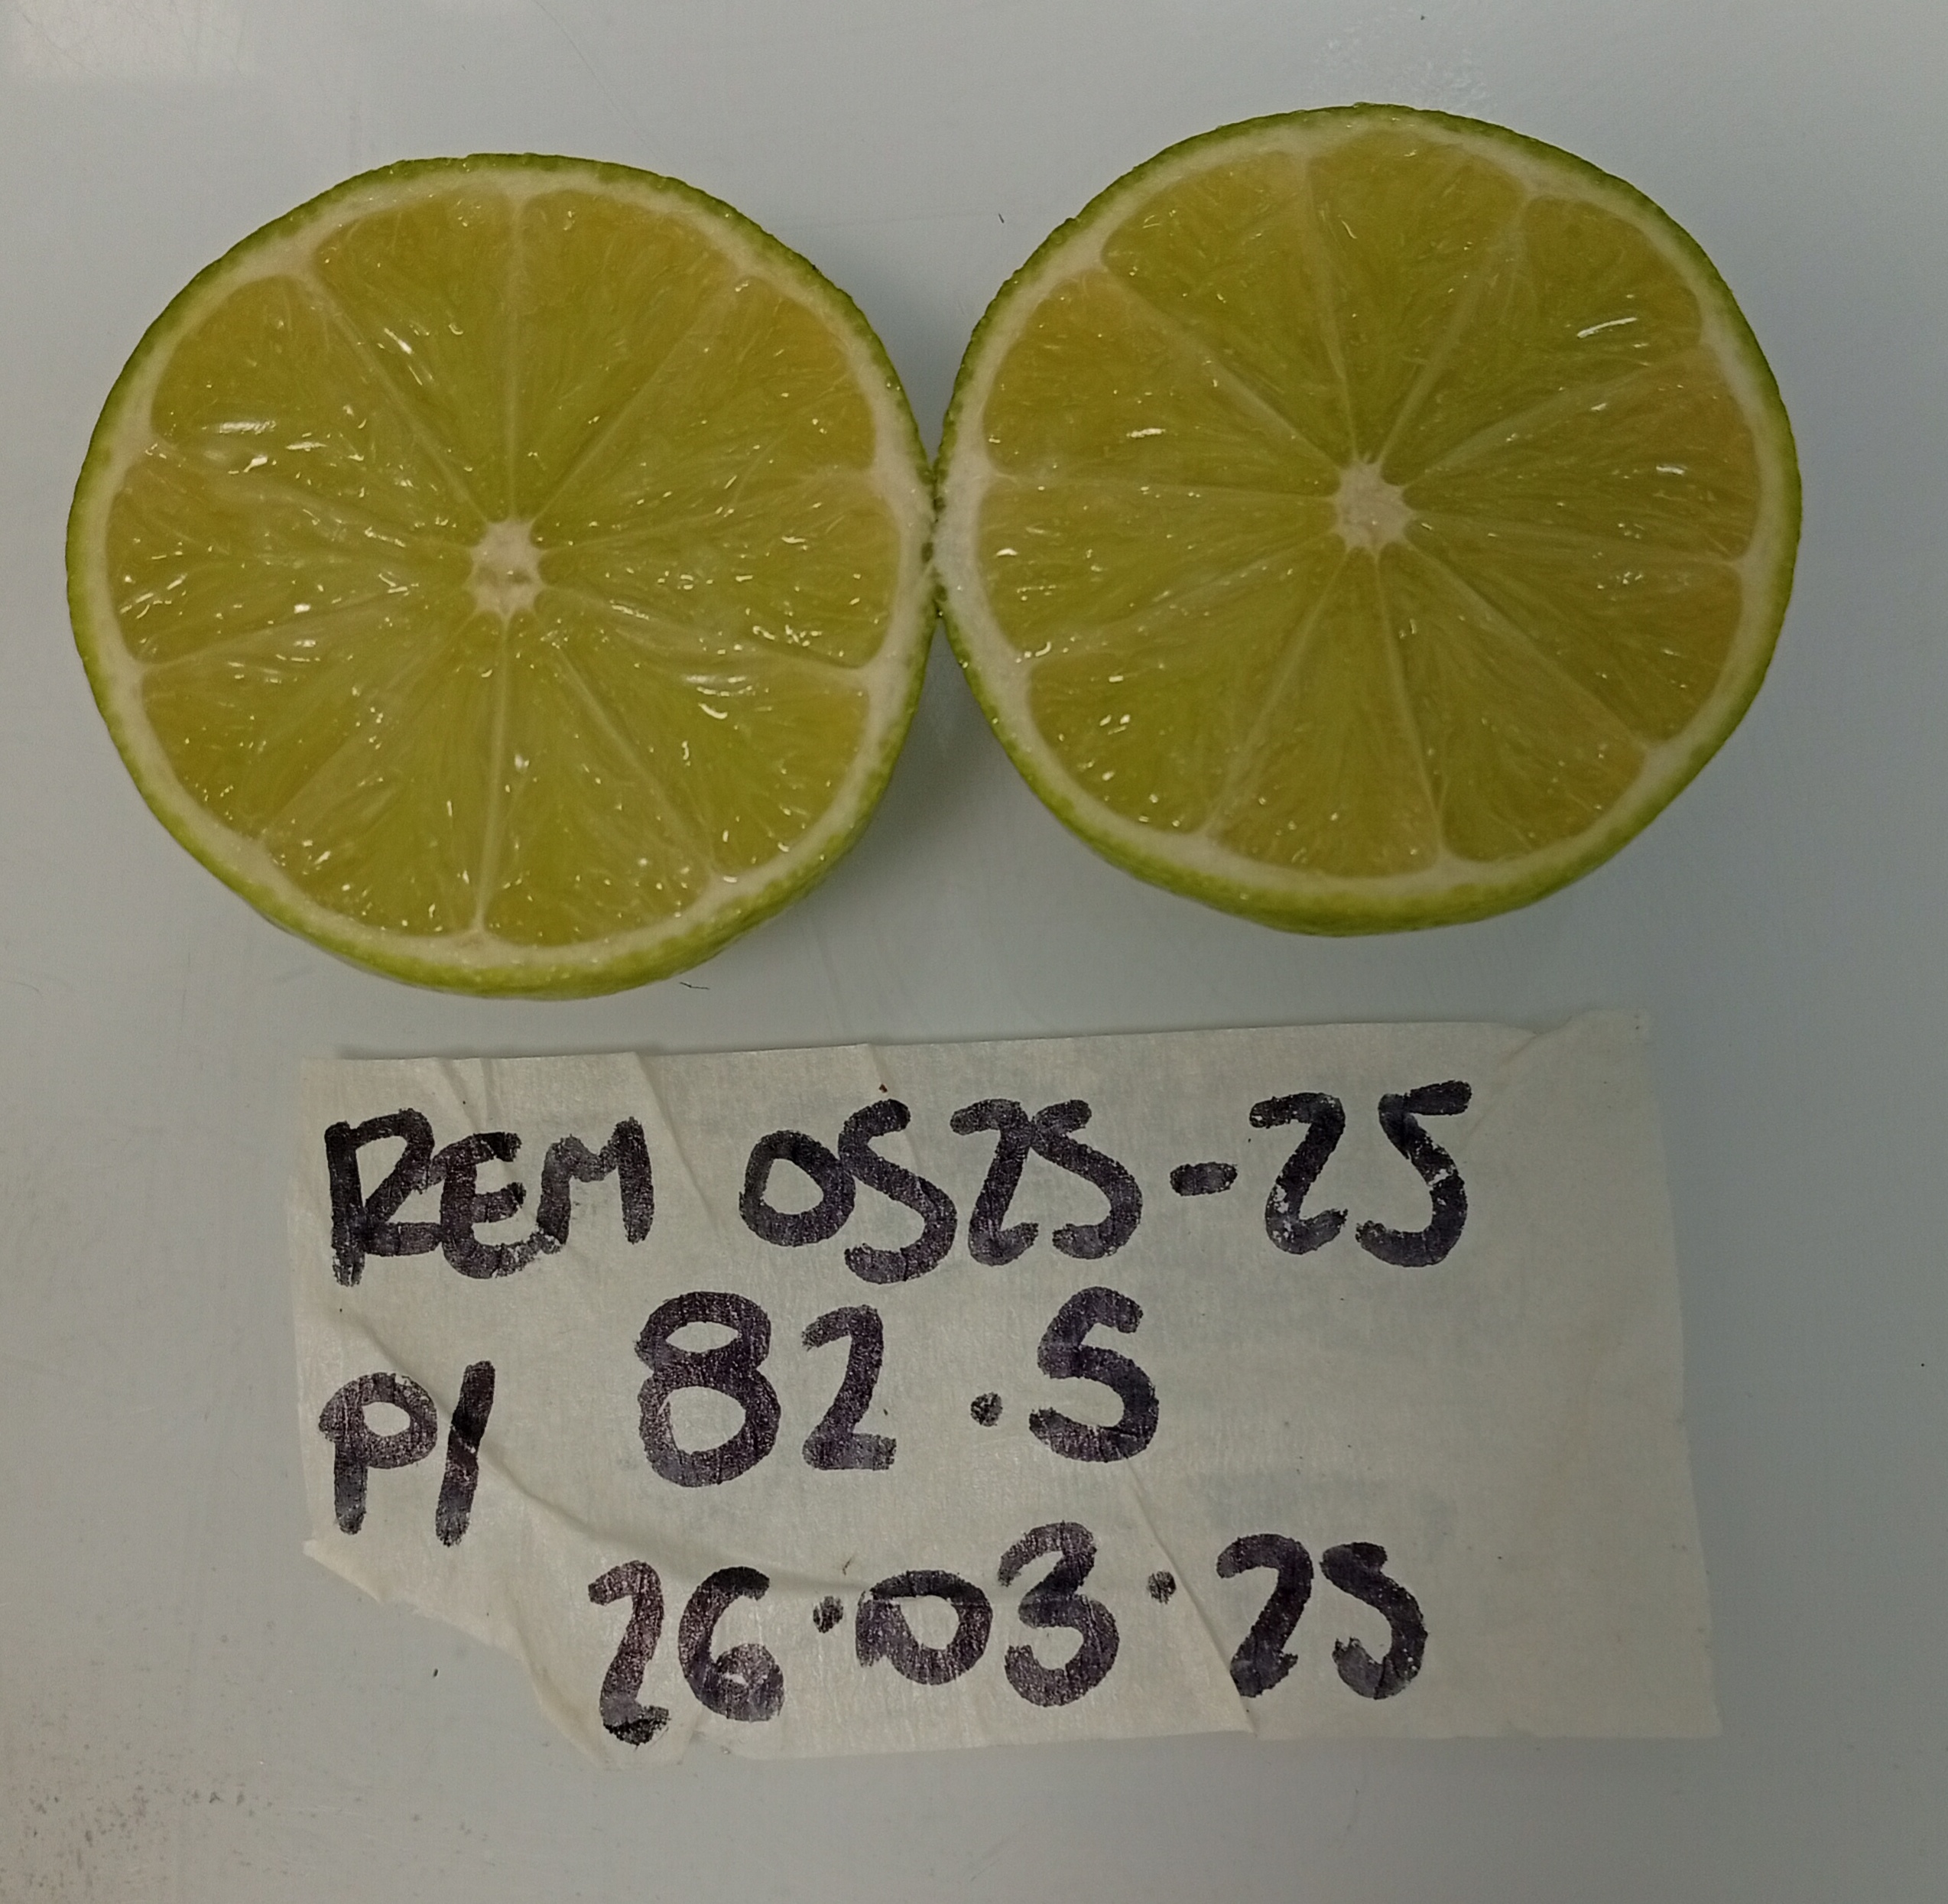 REM 0525-25
P/ 82.5
26.03.25